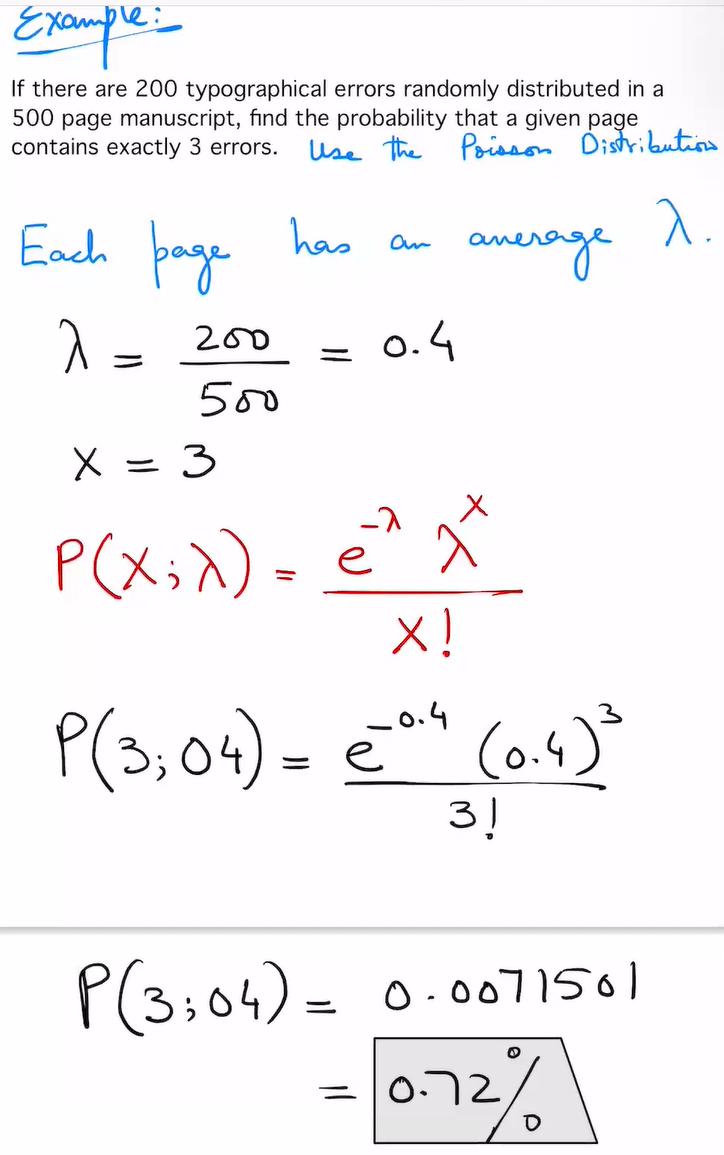 Example:
If there are 200 typographical errors randomly distributed in a
500 page manuscript, find the probability that a given page
contains exactly 3 errors. Use the Poisson Distribution
Each page has an average λ.
λ = 200/500 = 0.4
x = 3
P(x;λ) = e^-λ λ^x / x!
P(3;04) = e^-0.4 (0.4)^3 / 3!
P(3;04) = 0.0071501
= 0.72%